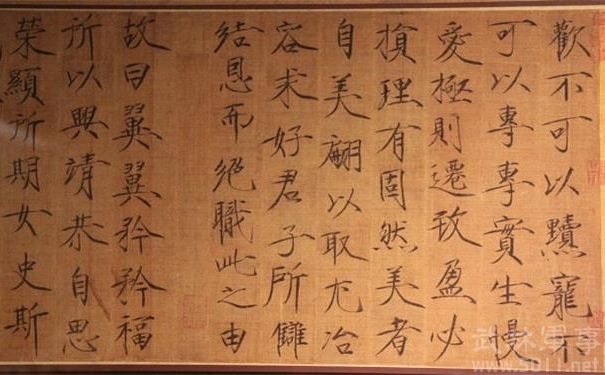 歡不可以黷寵不
可以專專實生慢
愛極則遷致盈必
損理有固然美者
自美翩以取尤冶
容求好君子所讎
結恩而絕職此之由
故曰翼翼矜矜福
所以興靖恭自思
榮顯所期女史斯
www.5011.net